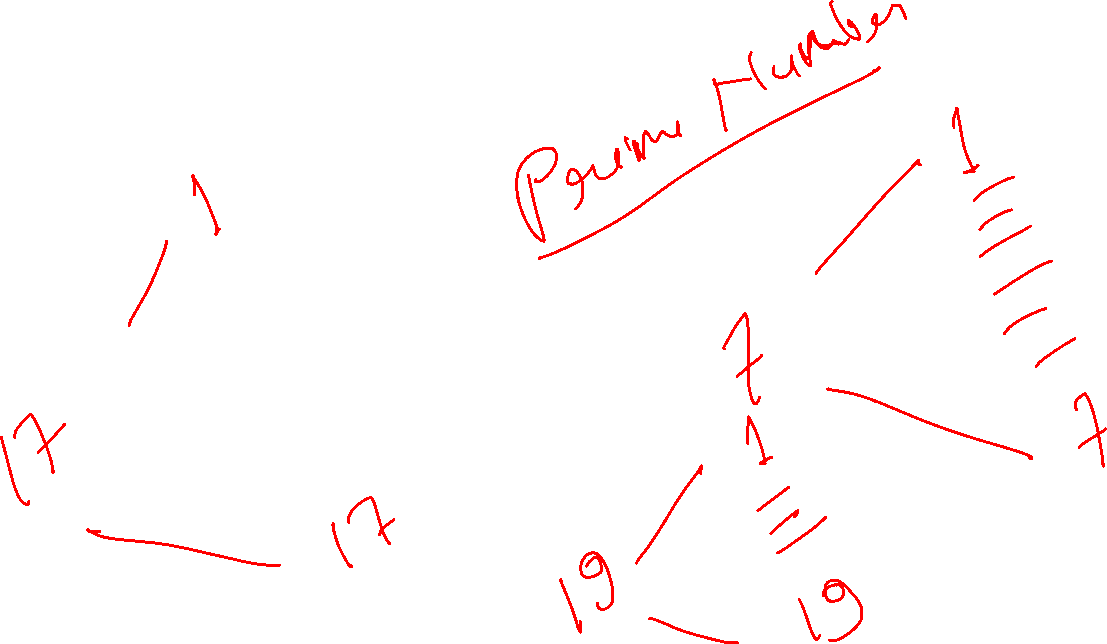 Prime Number
1
1
7
17
7
1
17
19
19